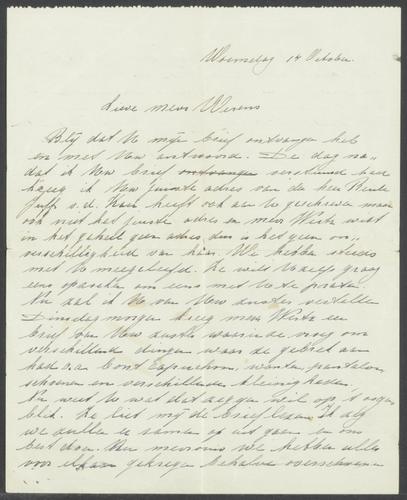 Woensdag 14 October.
Lieve mevr Werens
Blij dat U mijn brief ontvangen heb
en met Uw antwoord. De dag na
dat ik Uw brief ontvangen verstuurd had
kreeg ik Uw juiste adres van de
Juff v.d. heeft ook aan U geschreven maar
ook niet het juiste adres en mevr wist
in het geheel geen adres, dus is het geen on
verschilligheid van hier. We hebben steeds
met U meegeleefd. Ze wil U zelfs graag
eens opzoeken om eens met U te praten
Nu zal ik U van Uw zuster vertellen
Dinsdagmorgen kreeg mevr een
brief van Uw zuster waarin ze vroeg om
verschillende dingen waar ze gebrek aan
had o.a. bont capuchon, wanten, pantalon
schoenen en verschillende kleinigheden.
Nu weet U wat dat zeggen wil op 't oogen
blik. Ze liet mij de brief lezen. Ik zeg
we zullen er samen op uit gaan en ons
best doen. Nu mevrouw we hebben alles
voor elkaar gekregen behalve overschoenen